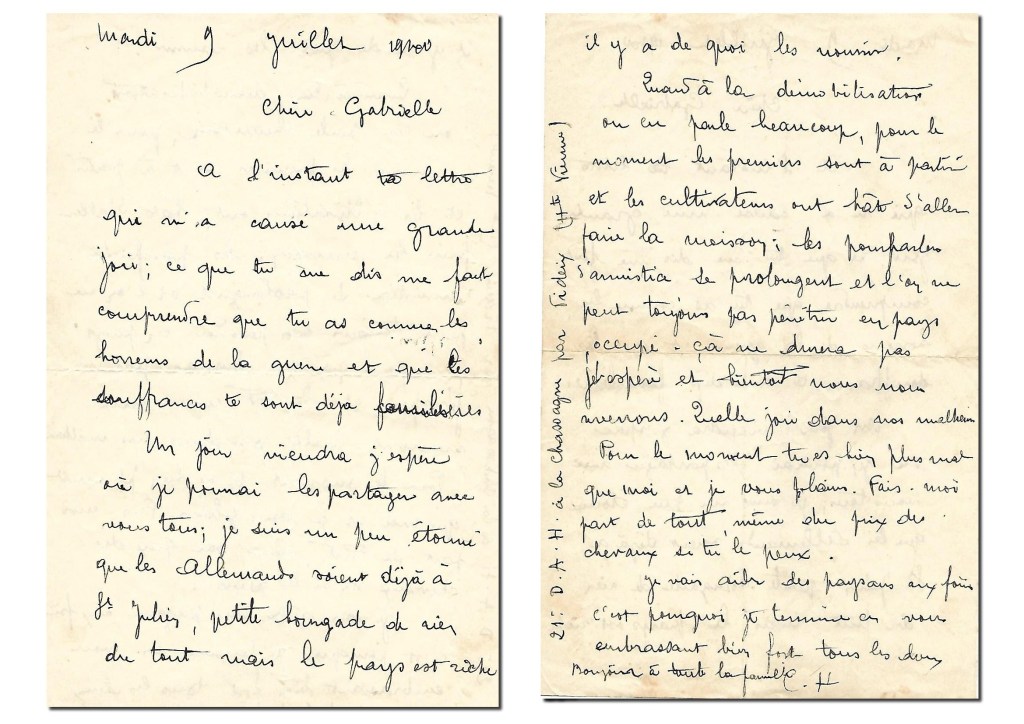 Mardi 9 juillet 1940
Chère Gabrielle
A l'instant ta lettre
qui m'a causé une grande
joie; ce que tu me dis me fait
comprendre que tu as connue les
horreurs de la guerre et que les
souffrances te sont déjà
Un jour viendra j'espère
où je pourrai les partager avec
vous tous; je suis un peu étonné
que les Allemands soient déjà à
St Julien, petite bourgade de rien
du tout mais le pays est riche
il y a de quoi les nourrir.
Quand à la démobilisation
on en parle beaucoup, pour le
moment les premiers sont à partir
et les cultivateurs ont hâte d'aller
faire la moisson; les pourparlers
d'amistia se prolongent et l'on ne
peut toujours pas pénétrer en pays
occupé. Çà ne durera pas
je espère et bientôt nous nous
reverrons. Quelle joie dans nos malheurs
Pour le moment tu es bien plus mal
que moi et je vous plains. Fais-moi
part de tout, même du prix des
chevaux si tu le peux.
Je vais aider des paysans aux foins
c'est pourquoi je termine en vous
embrassant bien fort tous les deux
Bonjour à toute la famille. H
21e D.A.H. à la Chassagne par Videix (Hte Vienne)